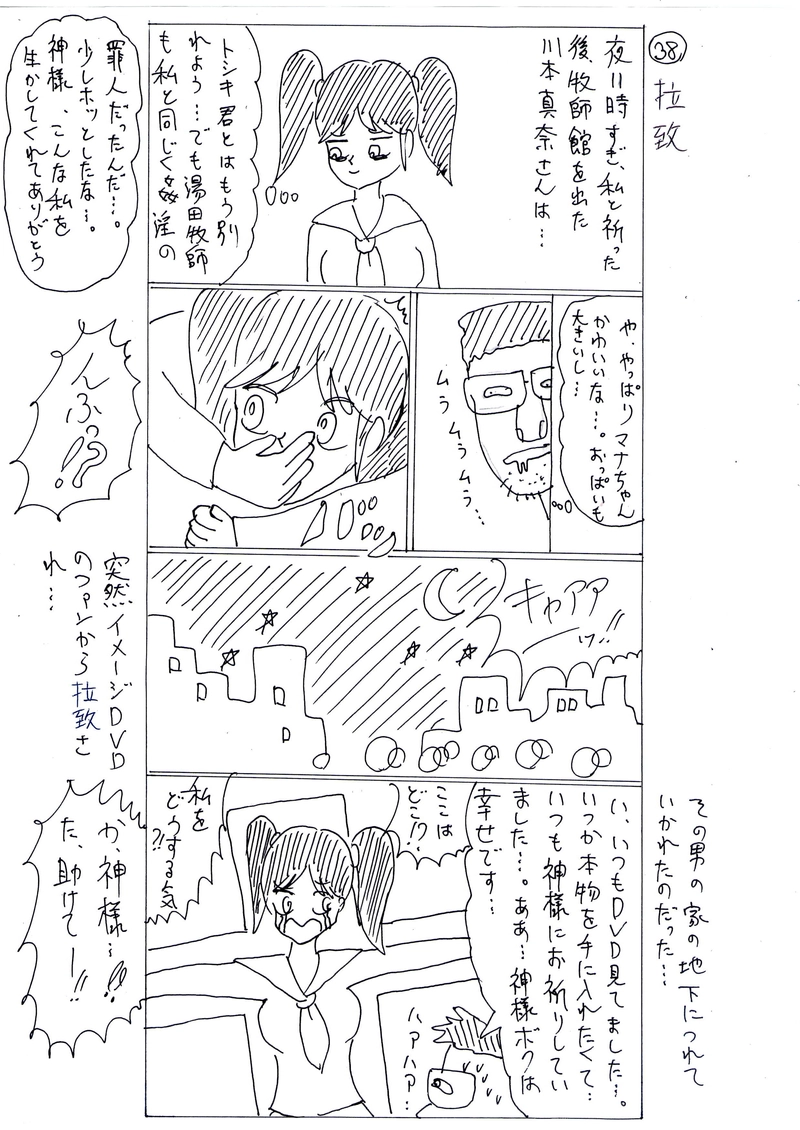 38
拉致
夜11時すぎ、私と祈った
後、牧師館を出た
川本真奈さんは…
トシキ君とはもう別
れよう…でも湯田牧師
も私と同じく姦淫の
罪人だったんだ…。
少しホッとしたな…。
神様、こんな私を
生かしてくれてありがとう
や、やっぱりマナちゃん
かわいいな…。おっぱいも
大きいし…
ムラムラムラ…
んふっ!?
キャアア
ァ!!
突然イメージDVD
のファンから拉致さ
れ…
その男の家の地下につれて
いかれたのだった…
い、いつもDVD見てました…。
いつか本物を手に入れたくて…
いつも神様にお祈りしてい
ました…。ああ…神様ボクは
幸せです…
ここは
どこ!?
私を
どうする気
?!
ハァハァ…
か、神様…!!
た、助けてー!!